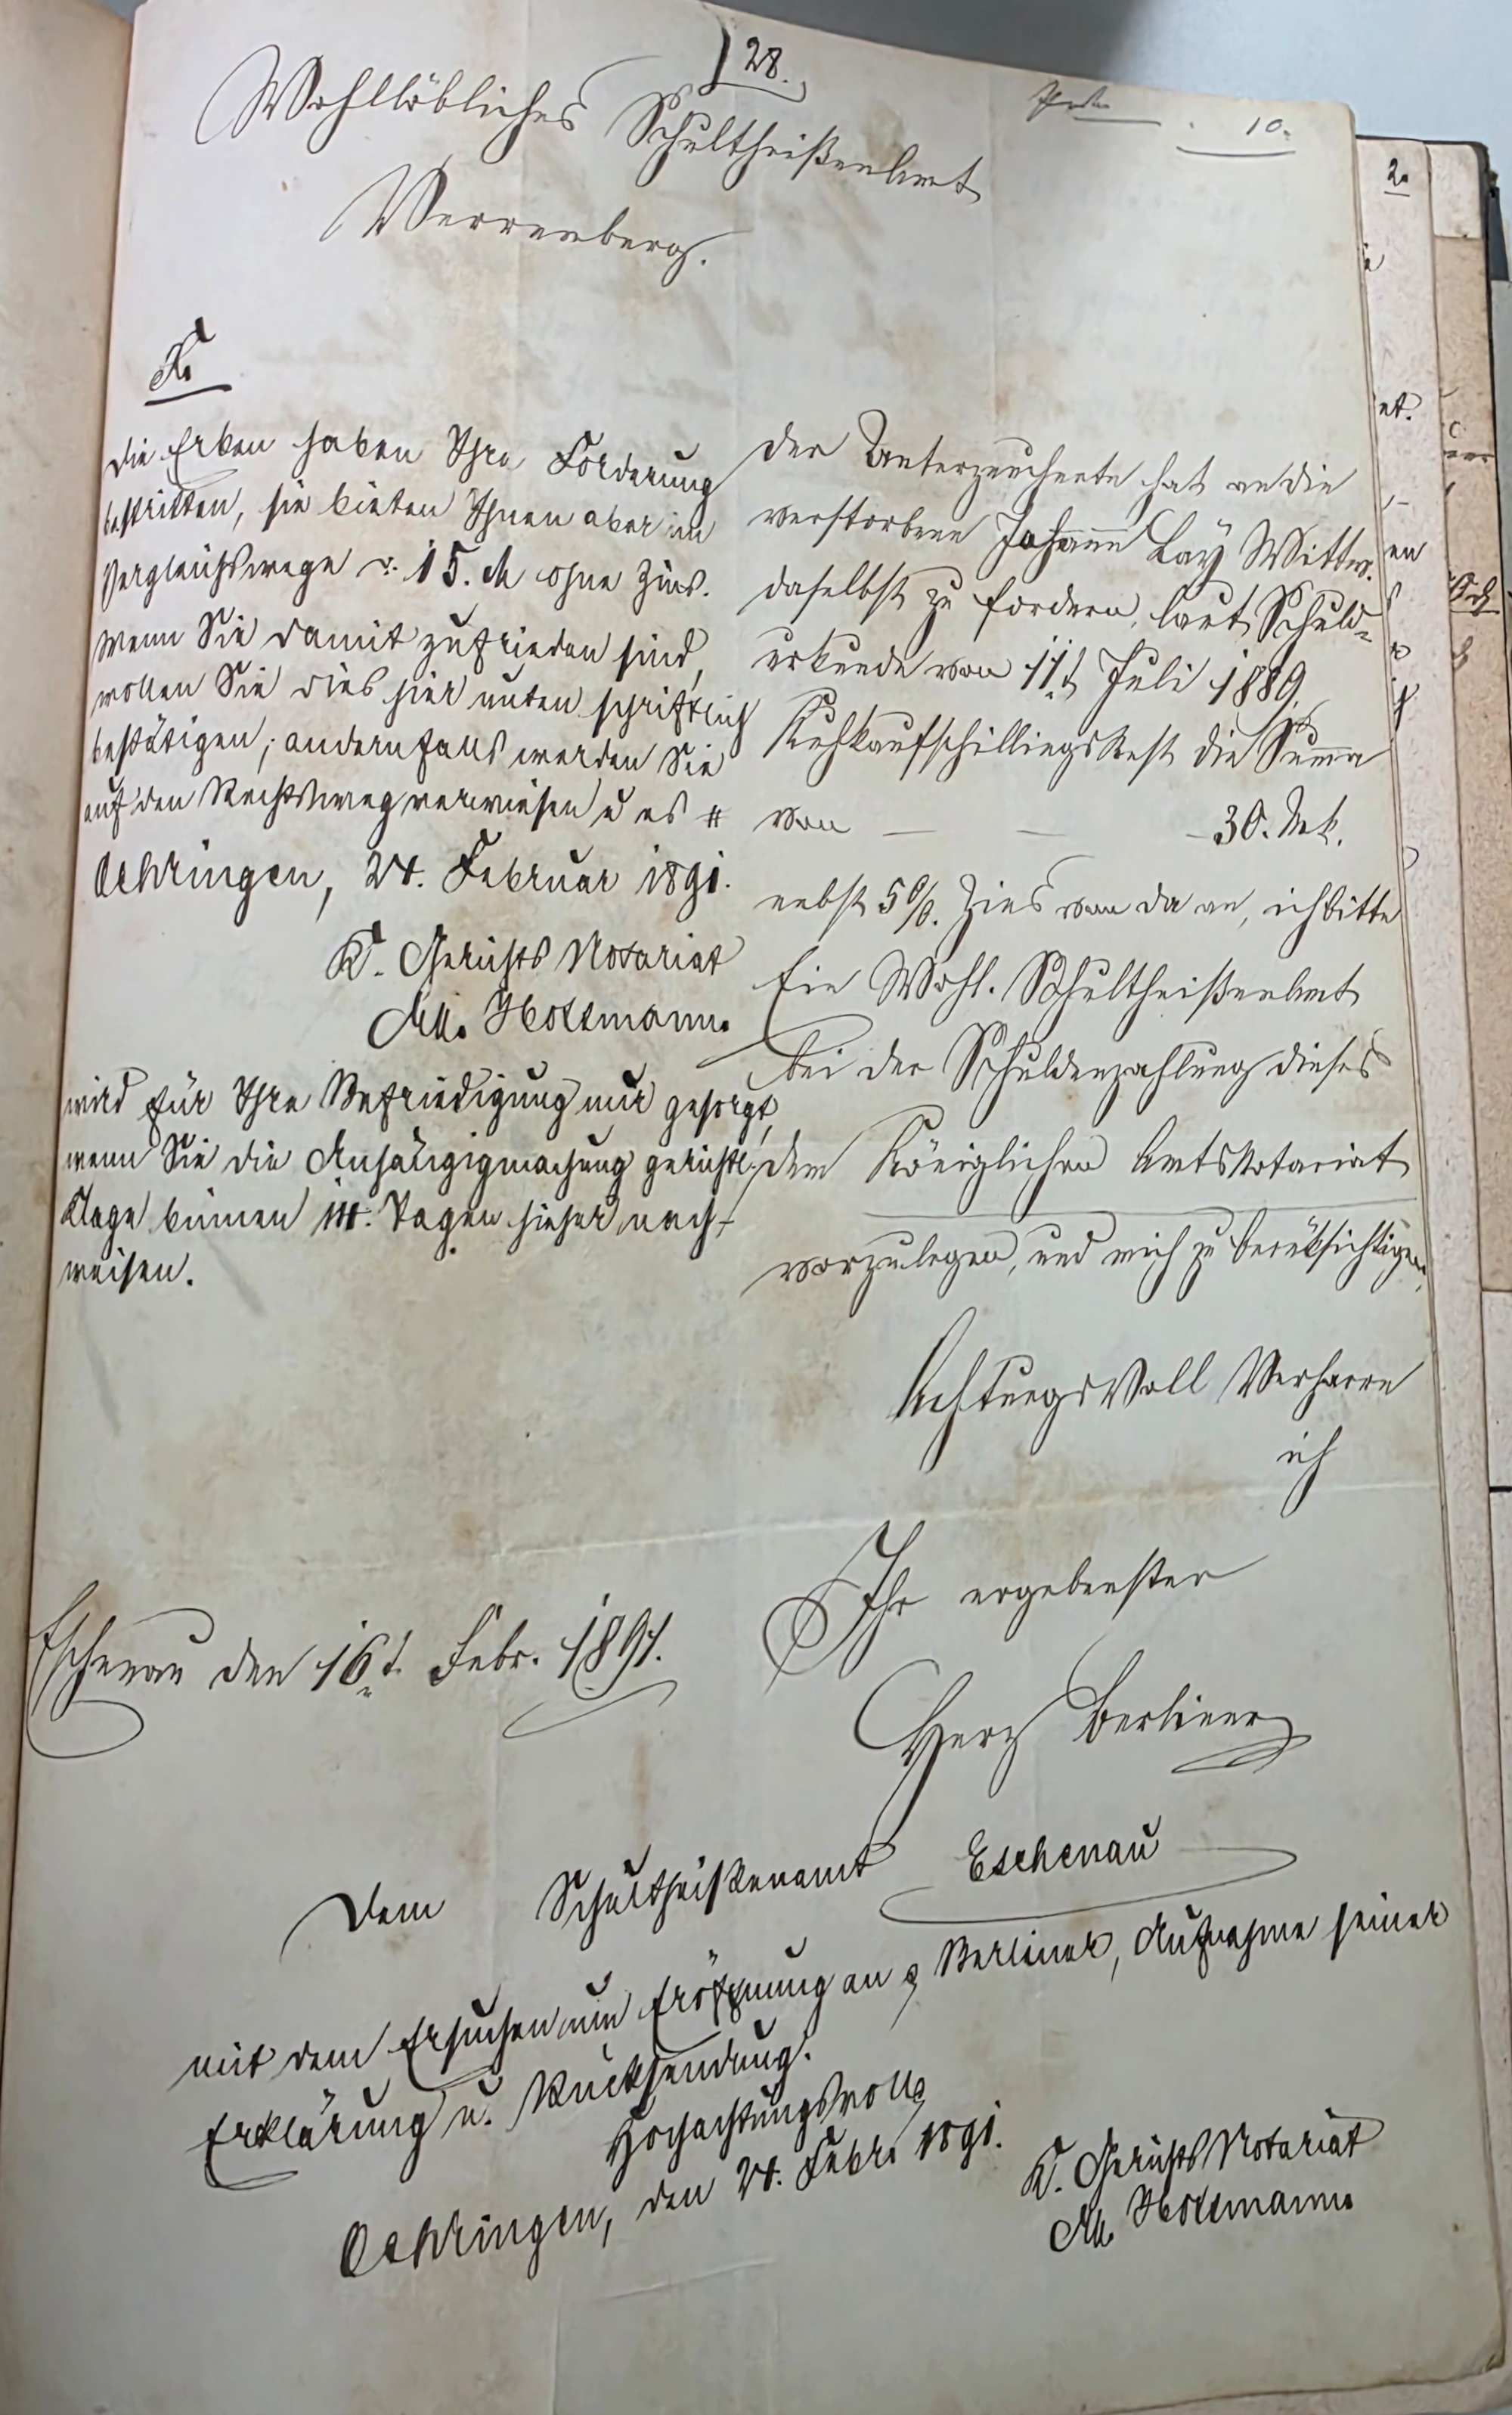 28.
10.
Wohllöbliches Schultheißenamt
Verrenberg.
Der Unterzeichnete hat an die
verstorbene Johann Lay Wittw.
daselbst zu fordern, laut Schuld-
urkunde vom 11t Juli 1889.
Kuhkaufschillingsrest die Summa
von — — — 30. Mk.
nebst 5%. Zins von da an, ich bitte
Ein Wohl. Schultheißenamt
bei der Schuldenzahlung dieses
dem Königlichen Amtsnotariat
vorzulegen, und mich zu berüksichtigen,
Achtungsvoll Verharre
ich
Ihr ergebenster
Herz Berliner
Eschenau den 16t. Febr. 1891.
Die Erben haben Ihre Forderung
bestritten, sie bieten Ihnen aber im
Vergleichswege 15. M ohne Zins.
Wenn Sie damit zufrieden sind,
wollen Sie dies hier unten schriftlich
bestätigen; andernfalls werden Sie
auf den Rechtsweg verwiesen u es #
Oehringen, 24. Februar 1891.
K. Gerichts Notariat
Holtzmann.
wird für Ihre Befriedigung nur gesorgt,
wenn Sie die Anhängigmachung gerichtl.
Klage binnen 14. Tagen hieher nach-
weisen.
Dem Schultheißenamt Eschenau
mit dem Ersuchen um Eröffnung an Berliner, Aufnahme seiner
Erklärung u. Rücksendung.
Hochachtungsvoll
Oehringen, den 24. Febr. 1891.
K. Gerichts Notariat
Holtzmann.
2.